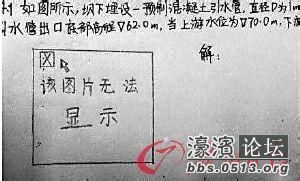 如图所示，坝下埋设一预制混凝土引水管，直径D为1m
引水管出口底部高程▽62.0m，当上游水位为▽70.0m，下游
解：
该图片无法
显示
濠滨论坛
bbs.0513.org